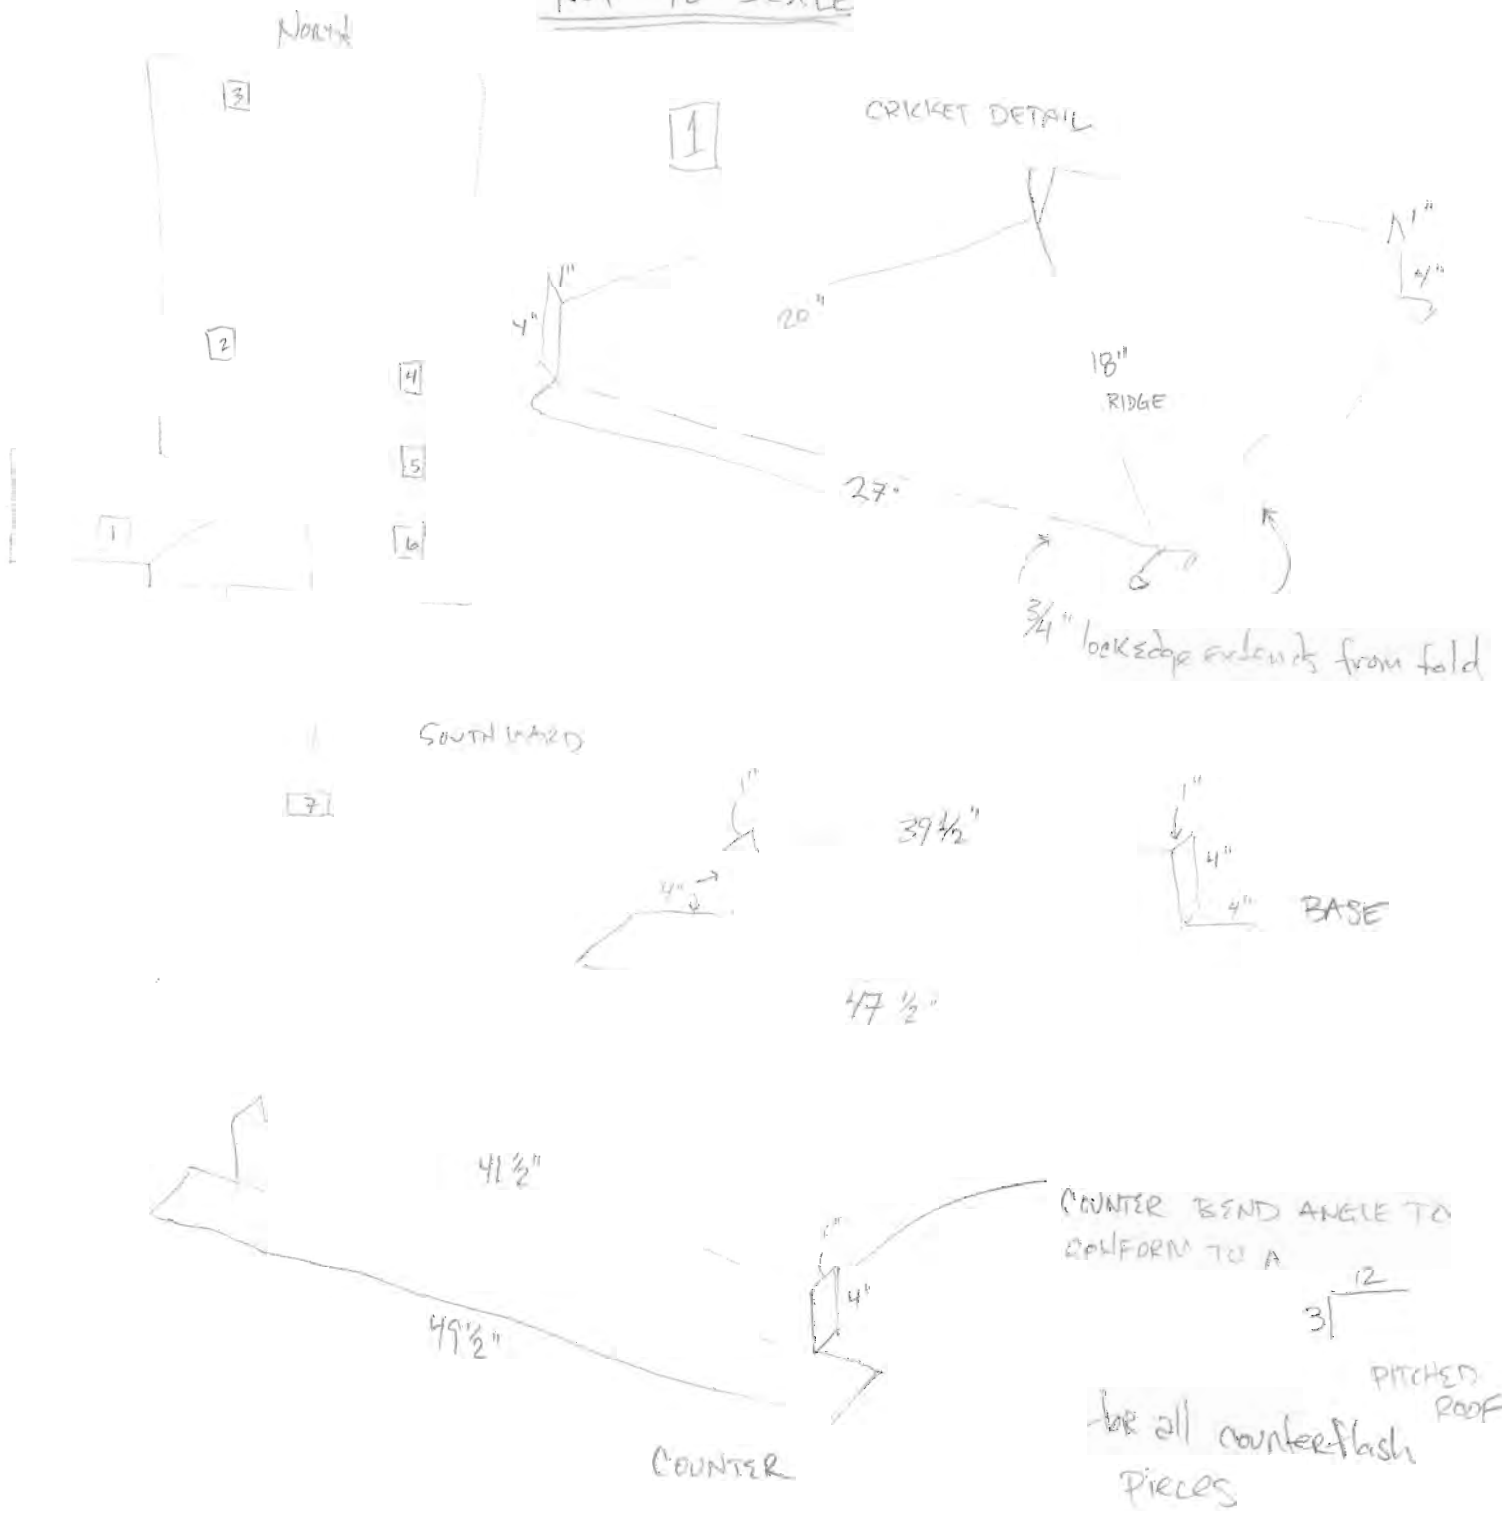 NOT TO SCALE
North
3
1
CRICKET DETAIL
1"
4"
1"
4"
20"
2
18"
RIDGE
4
5
27"
1
6
3/4" lockedge extends from fold
SOUTHWARD
7
1"
39 1/2"
1"
4"
4"
4"
BASE
47 1/2"
41 1/2"
COUNTER BEND ANGLE TO
CONFORM TO A
12
3
PITCHED
ROOF
1"
4"
49 1/2"
for all counterflash
Pieces
COUNTER